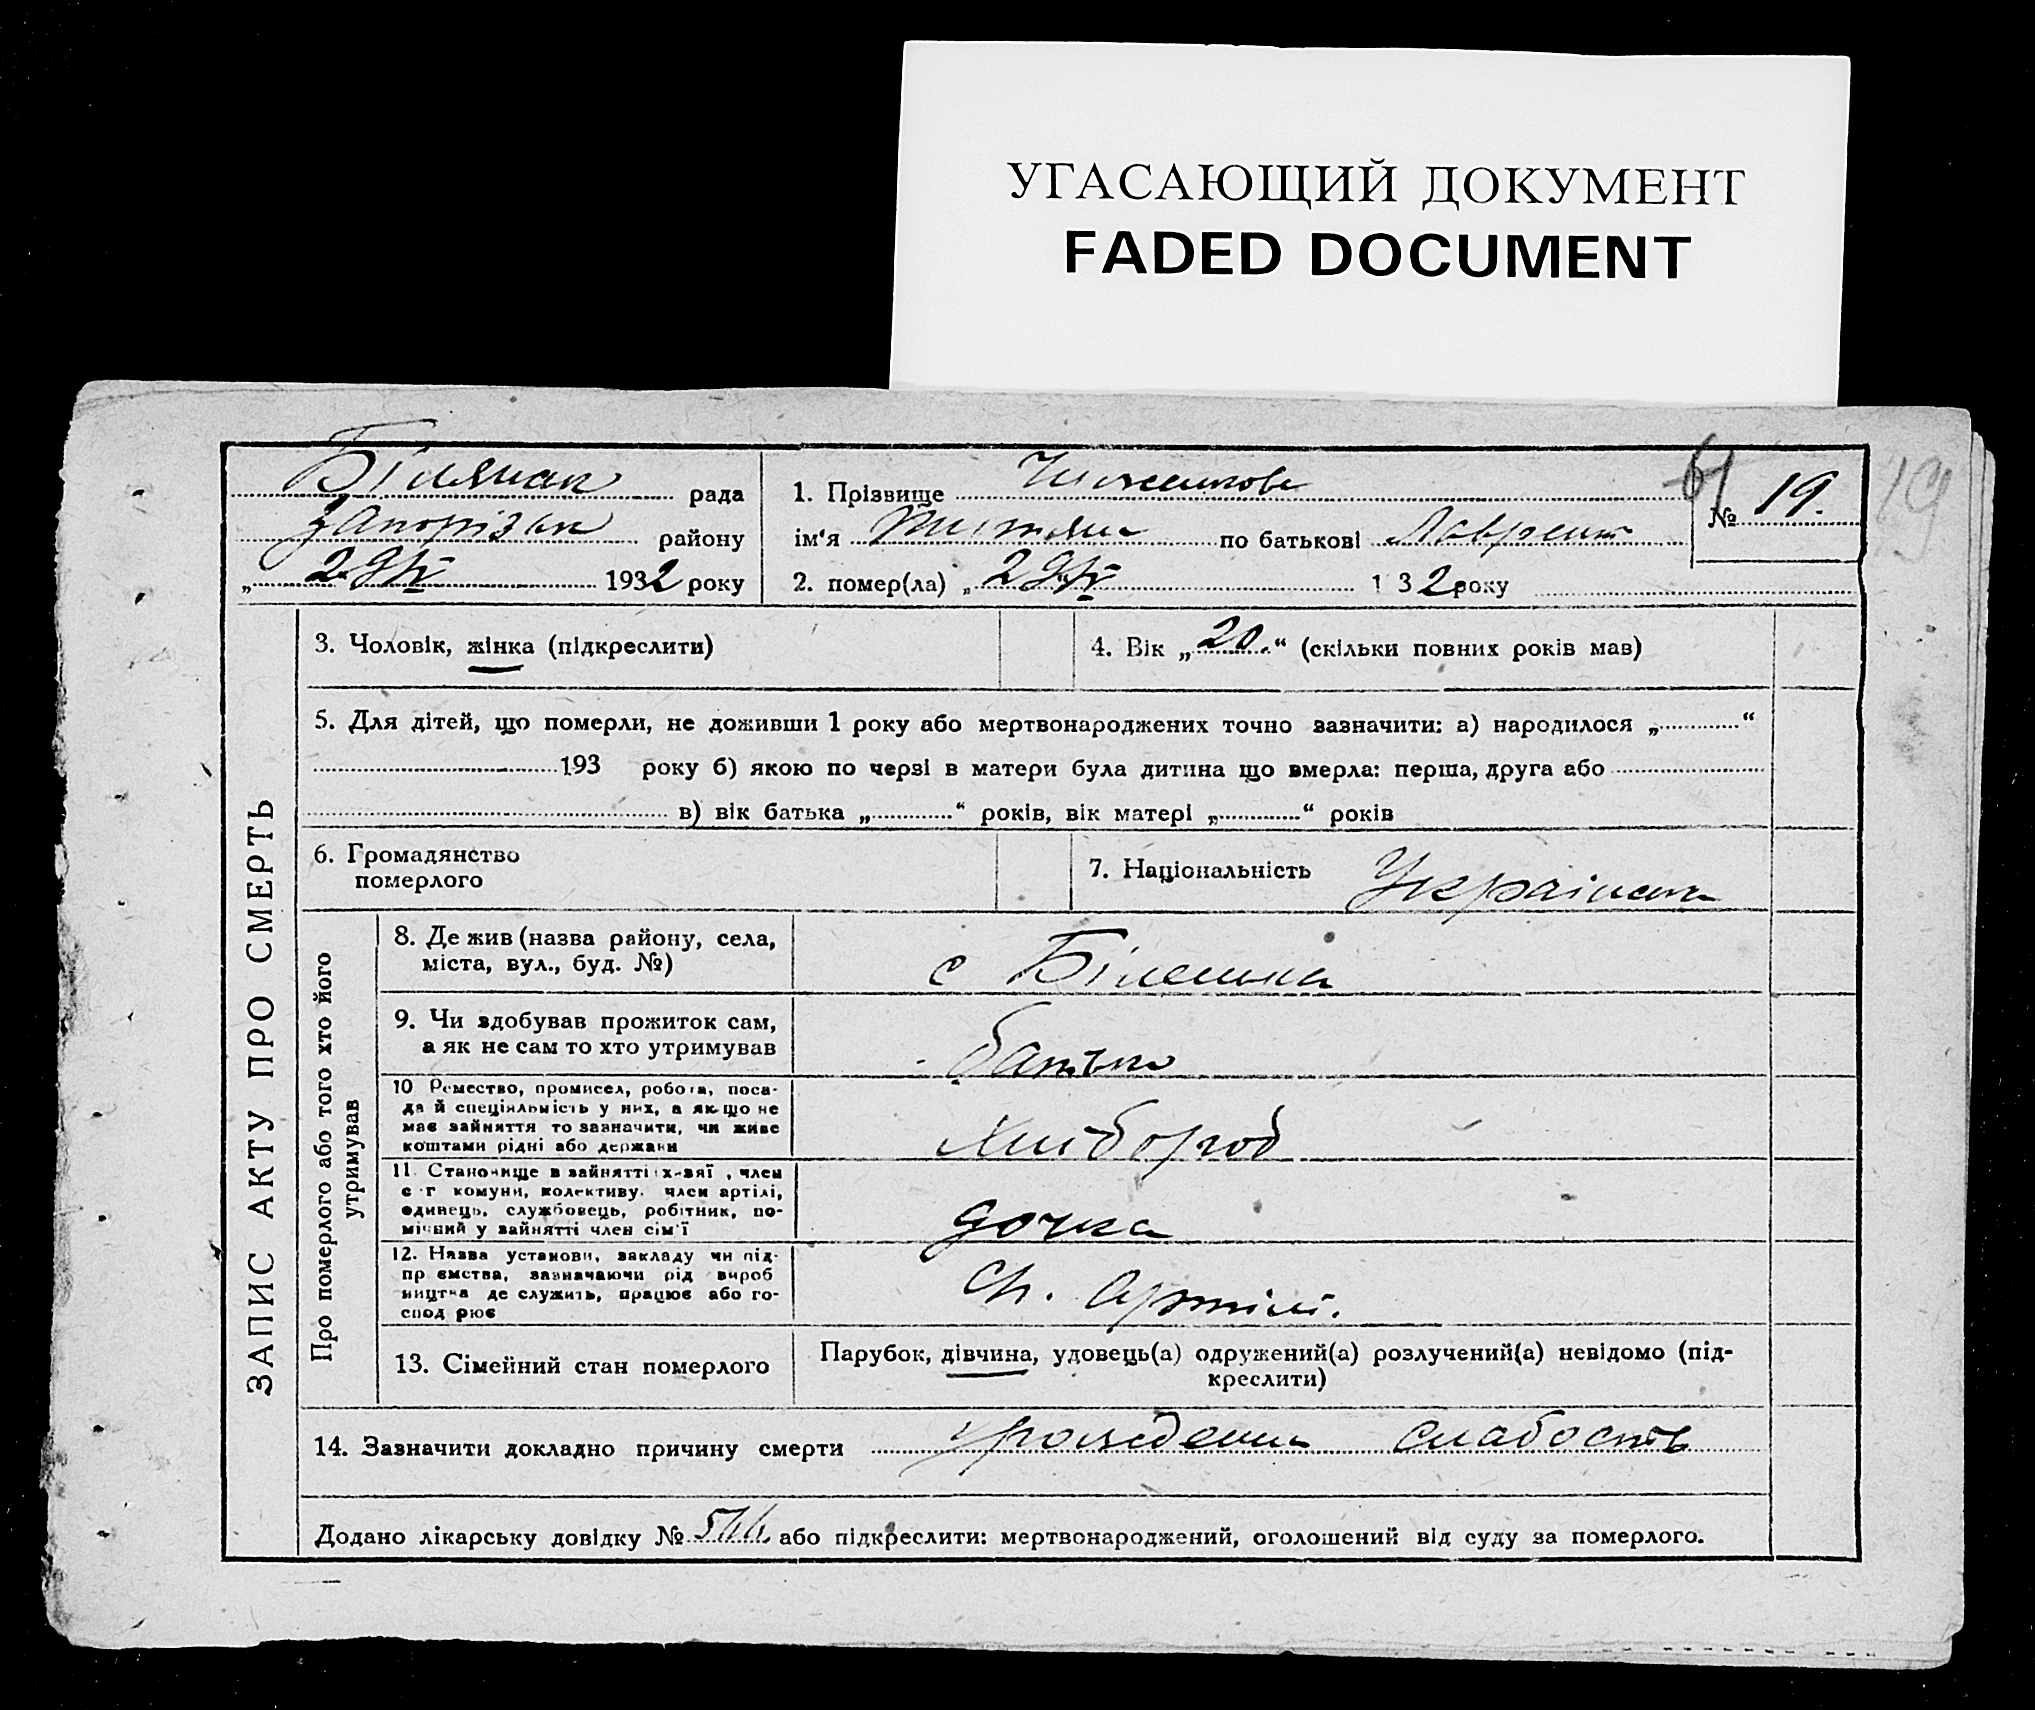 УГАСАЮЩИЙ ДОКУМЕНТ
FADED DOCUMENT
19
ЗАПИС АКТУ ПРО СМЕРТЬ
Білянск рада
Запорізьк району
„ 29/IV 1932 року
1. Прізвище
ім'я по батькові Лаврент
2. помер(ла) „ 29/IV 1 32 року
№ 19.
3. Чоловік, жінка (підкреслити)
4. Вік „20.“ (скільки повних років мав)
5. Для дітей, що померли, не доживши 1 року або мертвонароджених точно зазначити: а) народилося „ “
193 року б) якою по черзі в матери була дитина що вмерла: перша, друга або
в) вік батька „ “ років, вік матері „ “ років
6. Громадянство
померлого
7. Національність Українка
Про померлого або того хто його
утримував
8. Де жив (назва району, села,
міста, вул., буд. №)
с Біленька
9. Чи здобував прожиток сам,
а як не сам то хто утримував
батько
10 Ремество, промисел, робота, поса-
да й спеціяльність у них, а якщо не
має зайняття то зазначити, чи живе
коштами рідні або держави
хлібороб
11. Становище в зайнятті х-вяї , член
с г комуни, колективу. член артілі,
одинець, службовець, робітник, по-
мічний у зайнятті член сім'ї
дочка
12. Назва установи, закладу чи під-
пр ємства, зазначаючи рід вироб
ництва де служить, працює або го-
спод рює
Сh. Артіл.
13. Сімейний стан померлого
Парубок, дівчина, удовець(а) одружений(а) розлучений(а) невідомо (під-
креслити)
14. Зазначити докладно причину смерти урожденна слабость
Додано лікарську довідку № або підкреслити: мертвонароджений, оголошений від суду за померлого.